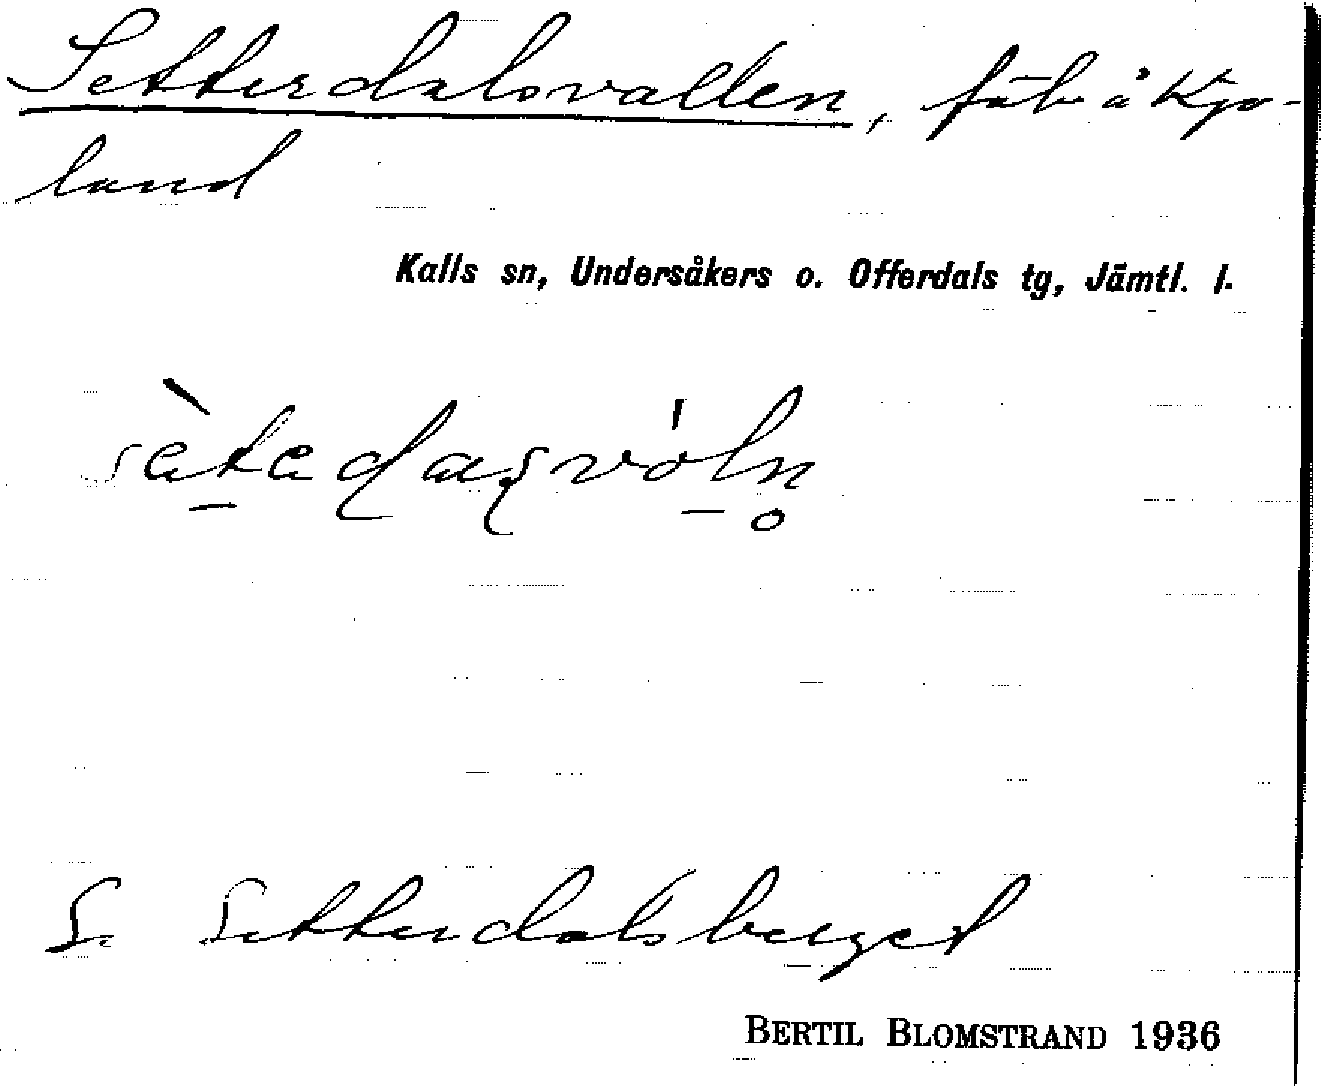 Setterdalsvallen, fäb. å Kyo-
land
Kalls sn, Undersåkers o. Offerdals tg, Jämtl. l.
S. Setterdalsberget
BERTIL BLOMSTRAND 1936